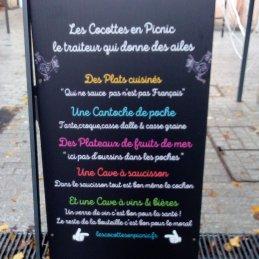 Les Cocottes en Picnic
le traiteur qui donne des ailes
Des Plats cuisinés
"Qui ne sauce pas n'est pas Français"
Une Cantoche de poche
Tarte,croque,casse dalle & casse graine
Des Plateaux de fruits de mer
"ici pas d'oursins dans les poches"
Une Cave à saucisson
Dans le saucisson tout est bon même le cochon
Et une Cave à vins & bières
Un verre de vin c'est bon pour la santé !
Le reste de la bouteille c'est bon pour le moral
lescocottesenpicnic.fr